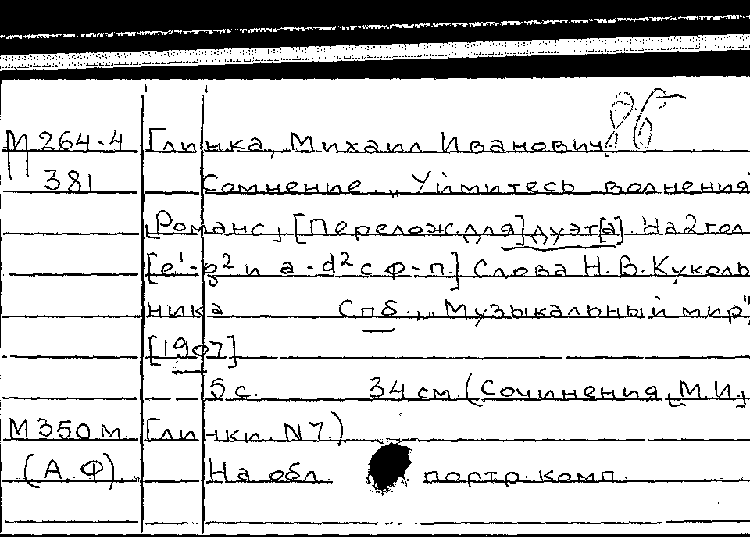 86
М 264-4 Глинка, Михаил Иванович.
381 Сомнение „Уймитесь волнения
Романс, [Перелож. для] дуэт[а]. На 2 гол
[e¹-g² и a-d² с ф-п.] Слова Н.В. Куколь
ника Спб., „Музыкальный мир",
[1907]
5 с. 34 см. (Сочинения М.И.
М 350 м Глинки. N 7.)
(А.Ф). На обл. портр. комп.